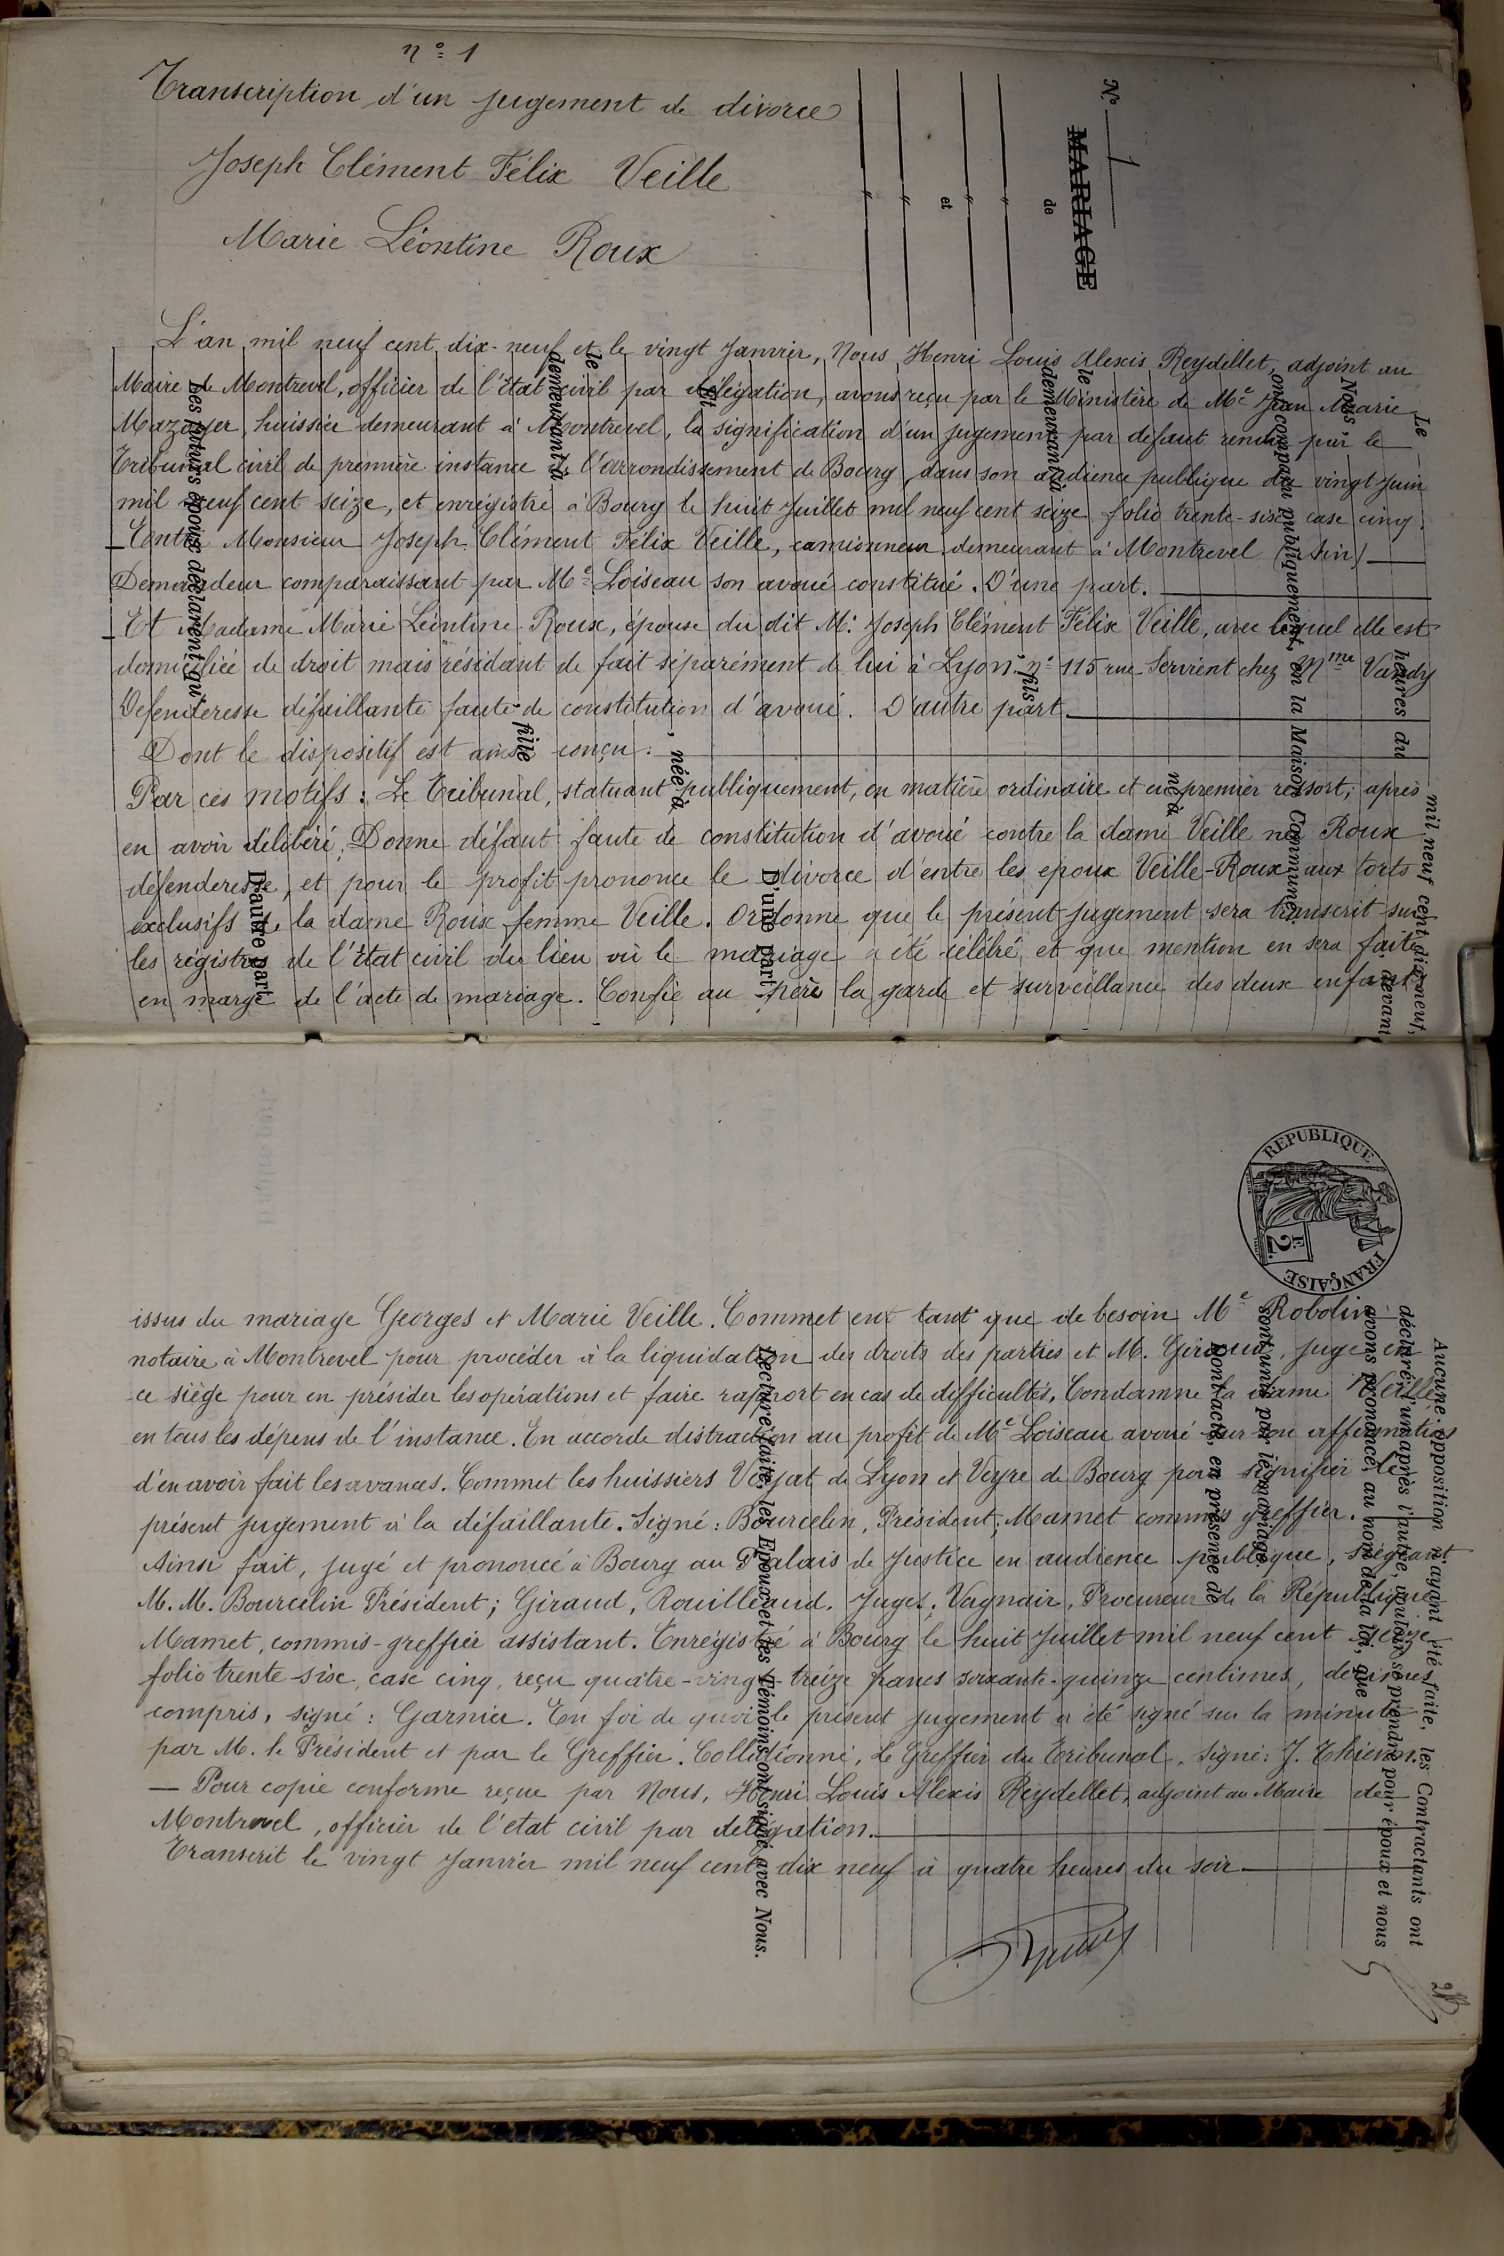 n° 1
Transcription d'un jugement de divorce
Joseph Clément Félix Veille
Marie Léontine Roux
N° 1
MARIAGE
de
et
L'an mil neuf cent dix-neuf et le vingt Janvier, Nous Henri Louis Alexis Reydellet, adjoint au
Maire de Montrevel, officier de l'état civil par délégation, avons reçu par le Ministère de Me Jean Marie
Mazuyer, huissier demeurant à Montrevel, la signification d'un jugement par défaut rendu par le
Tribunal civil de première instance de l'arrondissement de Bourg, dans son audience publique du vingt Juin
mil neuf cent seize, et enregistré à Bourg le huit Juillet mil neuf cent seize folio trente-six case cinq.
Entre Monsieur Joseph Clément Félix Veille, camionneur demeurant à Montrevel (Ain)
Demandeur comparaissant par Me Loiseau son avoué constitué. D'une part.
Et Madame Marie Léontine Roux, épouse du dit M. Joseph Clément Félix Veille, avec lequel elle est
domiciliée de droit mais résidant de fait séparément de lui à Lyon n° 115 rue Servient chez Mme Vandy
Défenderesse défaillante faute de constitution d'avoué. D'autre part
Dont le dispositif est ainsi conçu :
Par ces motifs : Le Tribunal, statuant publiquement, en matière ordinaire et en premier ressort, après
en avoir délibéré, Donne défaut faute de constitution d'avoué contre la dame Veille née Roux
défenderesse, et pour le profit prononce le divorce d'entre les epoux Veille-Roux aux torts
exclusifs de la dame Roux femme Veille. Ordonne que le présent jugement sera transcrit sur
les régistres de l'état civil du lieu où le mariage a été célébré et que mention en sera faite
en marge de l'acte de mariage. Confie au père la garde et surveillance des deux enfants
Le
mil neuf cent dix-neuf,
heures du
devant
Nous
ont comparu publiquement, en la Maison Commune,
le
demeurant à
né à
fils
D'une part
Et
née à
le
demeurant à
fille
D'autre part
Les futurs époux déclarent qu'
REPUBLIQUE FRANÇAISE
2 F.
issus du mariage Georges et Marie Veille. Commet en tant que de besoin Me Robolin
notaire à Montrevel pour procéder à la liquidation des droits des parties et M. Giraud, juge en
ce siège pour en présider les opérations et faire rapport en cas de difficultés. Condamne la dame Veille
en tous les dépens de l'instance. En accorde distraction au profit de Me Loiseau avoué sur son affirmation
d'en avoir fait les avances. Commet les huissiers Veyat de Lyon et Veyre de Bourg pour signifier le
présent jugement à la défaillante. Signé : Bourcelin, Président ; Mamet commis greffier.
Ainsi fait, jugé et prononcé à Bourg au Palais de Justice en audience publique, siégeant
M. M. Bourcelin Président ; Giraud, Rouilleaud. Juges, Vagnair, Procureur de la République
Mamet, commis-greffier assistant. Enregistré à Bourg le huit Juillet mil neuf cent seize
folio trente-six, case cinq, reçu quatre-vingt-treize francs soixante-quinze centimes, décimes
compris, signé : Garnier. En foi de quoi le présent jugement a été signé sur la minute
par M. le Président et par le Greffier. Collationné, Le Greffier du Tribunal, signé : J. Thienon.
— Pour copie conforme reçue par Nous, Henri Louis Alexis Reydellet, adjoint au Maire de
Montrevel, officier de l'état civil par délégation.
Transcrit le vingt Janvier mil neuf cent dix neuf à quatre heures du soir
Aucune opposition n'ayant été faite, les Contractants ont
déclaré, l'un après l'autre, vouloir se prendre pour époux et nous
avons prononcé, au nom de la loi, que
sont unis par le mariage.
Dont acte, en présence de
Lecture faite, les Epoux et les Témoins ont signé avec Nous.